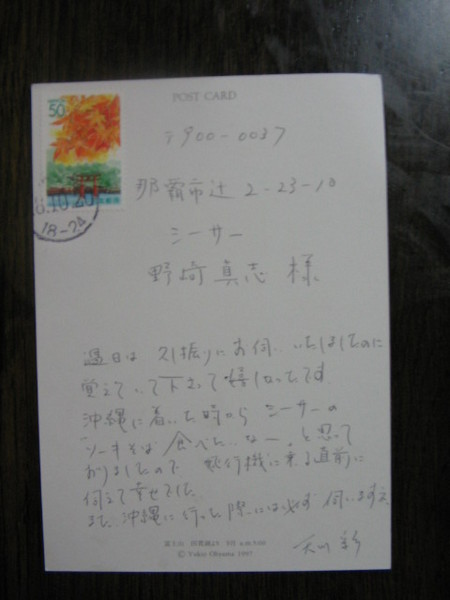 POST CARD
50
8.10.20
18-24
〒900-0037
那覇市辻 2-23-10
シーサー
野崎真志 様
過日は 久し振りにお伺いいたしましたのに
覚えていて下さって嬉しかったです
沖縄に着いた時から シーサーの
ソーキそば 食べたいなー。と思って
おりましたので 飛行機に乗る直前に
伺えて幸せでした
また 沖縄に行った際には必ず 伺いますネ
© Yukio Ohyama 1997